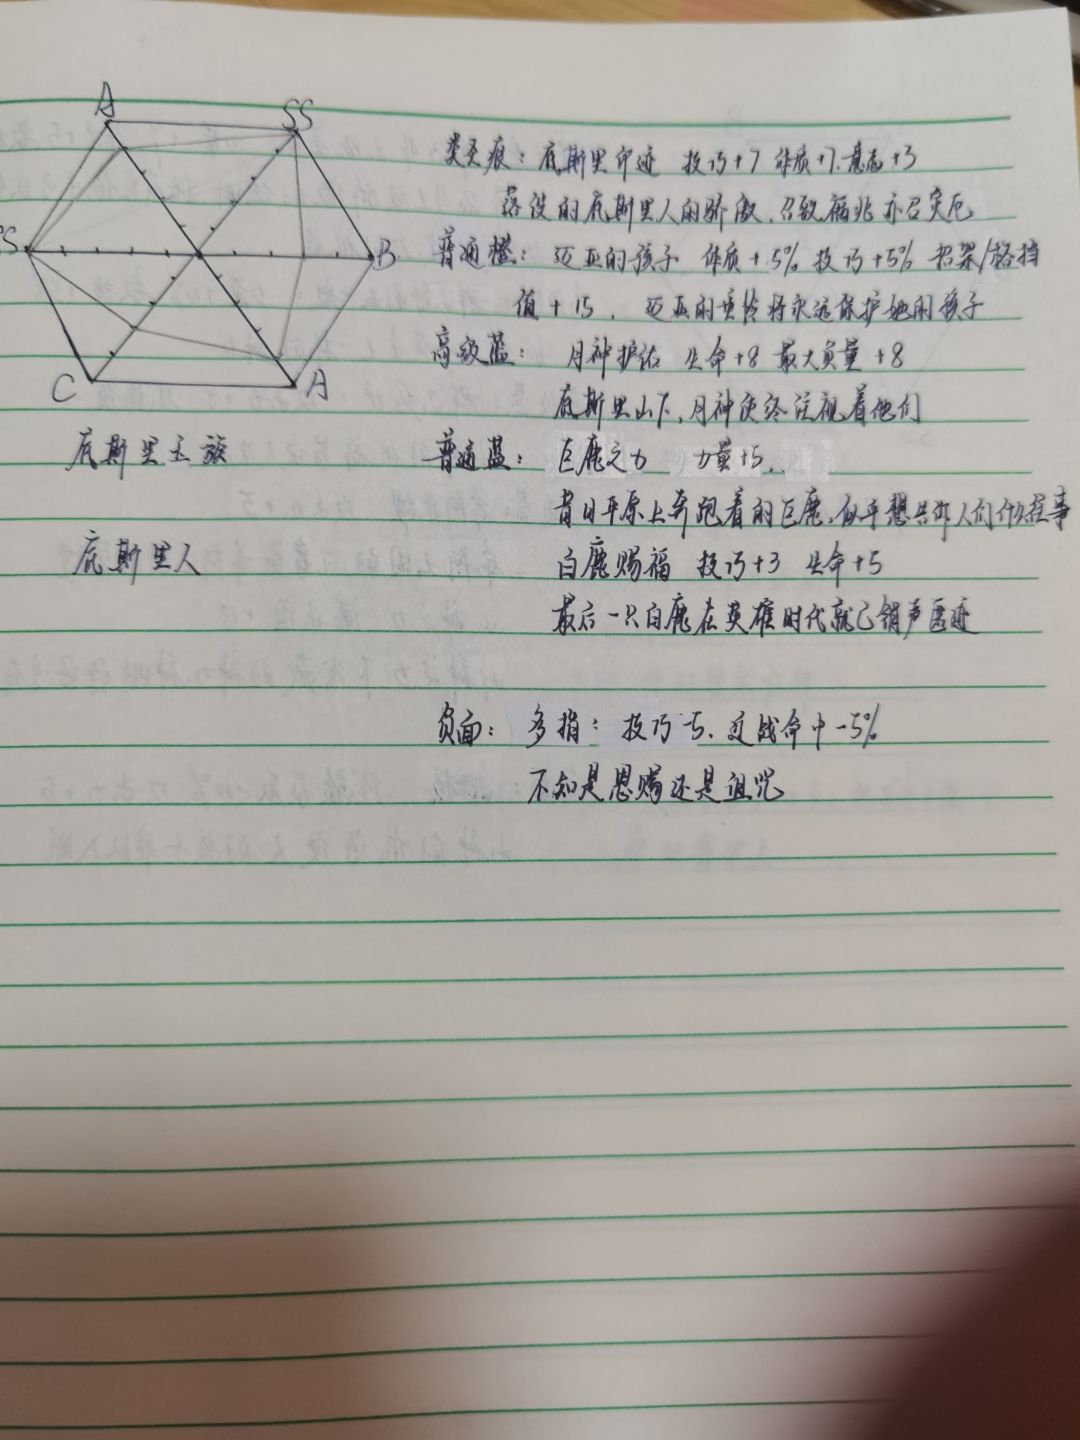 A
SS
B
C
A
类圣痕：底斯里印迹 技巧+7 体质+7.意志+3
落没的底斯里人的骄傲.召致福兆亦召灾厄
普通橙：迈亚的孩子 体质+5% 技巧+5% 招架/格挡
值+15. 迈亚的 将永远保护她的孩子
高级蓝：月神护佑 生命+8 最大负重+8
底斯里山下,月神使终注视着他们
底斯里王族
普通蓝：巨鹿之力 力量+5..
昔日平原上奔跑着的巨鹿,似乎想告诉人们什么往事
底斯里人
白鹿赐福 技巧+3 生命+5
最后一只白鹿在英雄时代就已销声匿迹
负面：多指：技巧-5. 近战命中-5%
不知是恩赐还是诅咒